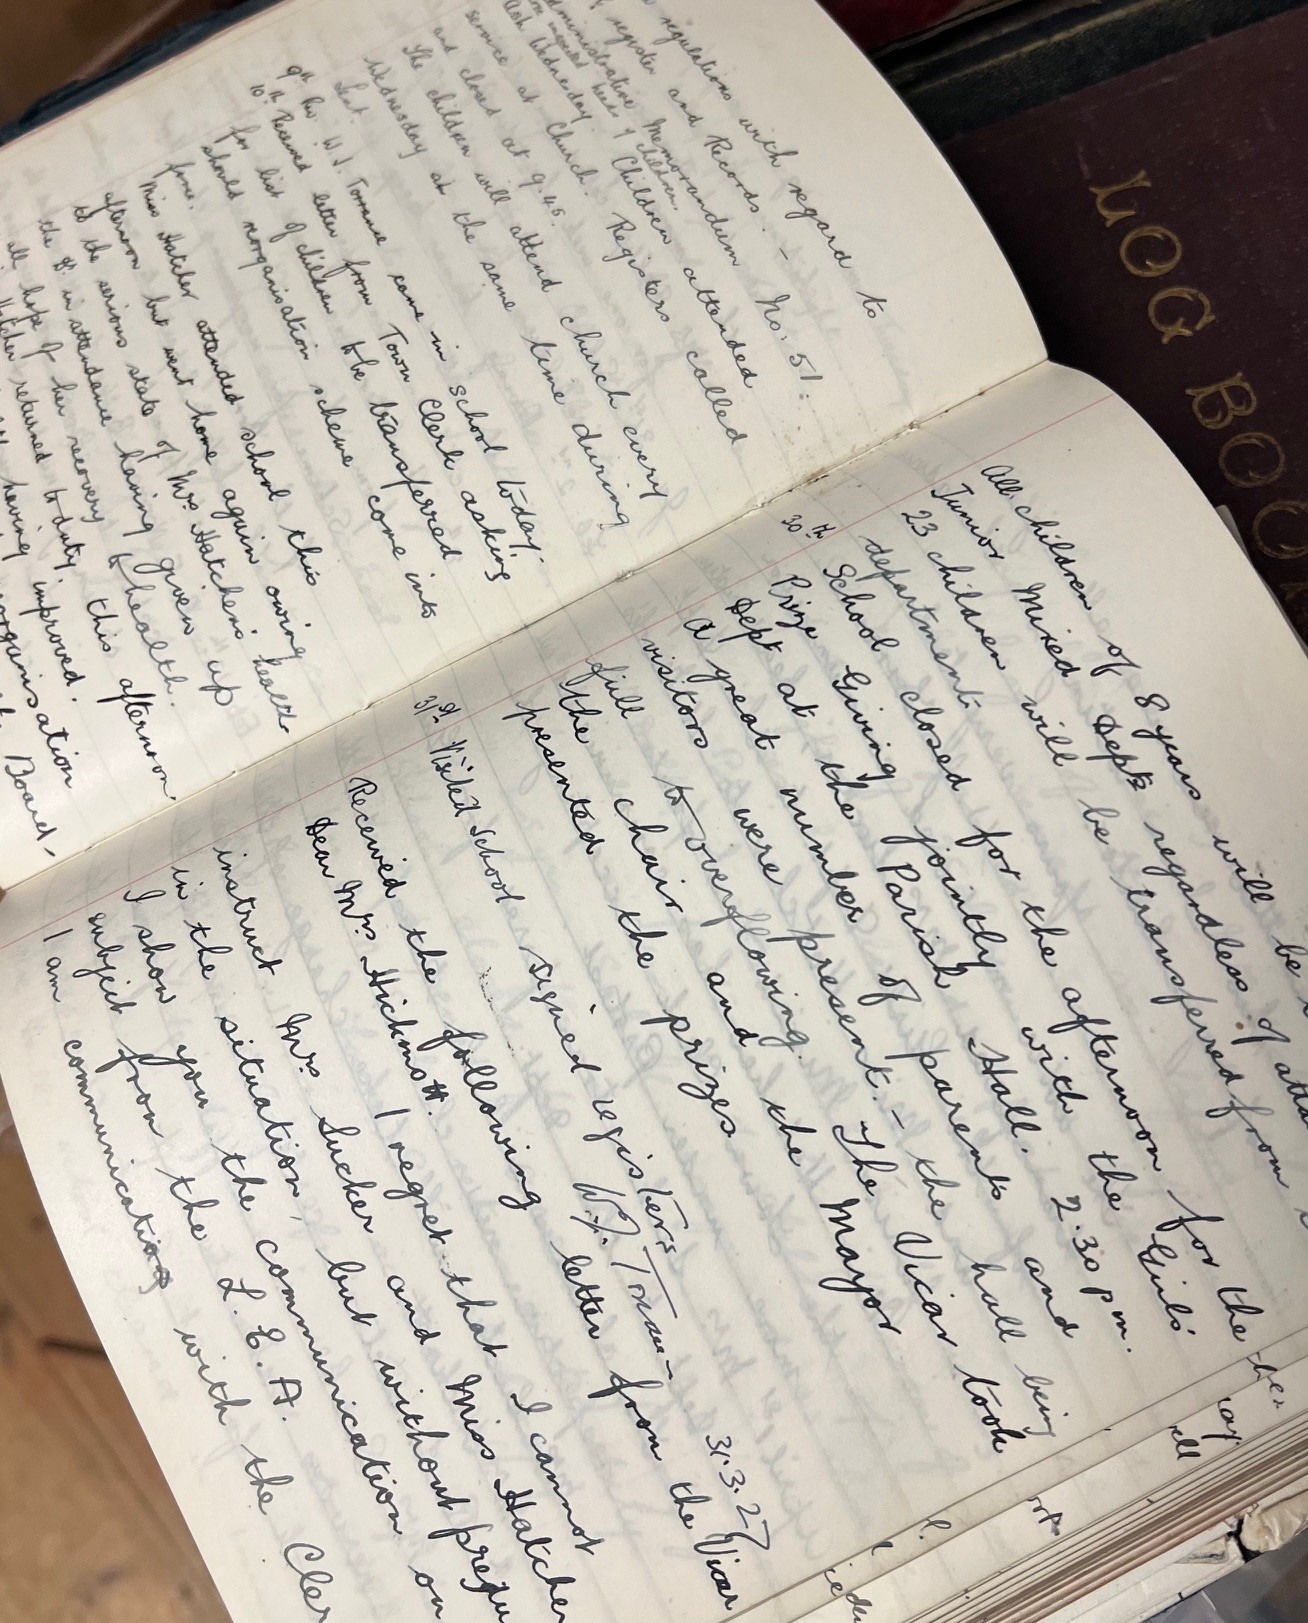 regulations with regard to
register and Records. –
Administrative Memorandum No. 51.
Ash Wednesday. Children attended
service at Church. Registers called
and closed at 9.45.
The children will attend church every
Wednesday at the same time during
Lent.
9th Rev. W. J. Torrance came in school today.
10th Received letter from Town Clerk asking
for list of children to be transferred
should reorganisation scheme come into
force.
Miss Hatcher attended school this
afternoon but went home again owing
to the serious state of Mrs Hatchers health
the Dr in attendance having given up
all hope of her recovery to health.
Hatcher returned to duty this afternoon.
having improved.
reorganisation
Board.
All children of 8 years will be
Junior Mixed Dept regardless of
23 children will be transferred from
department.
30th School closed for the afternoon for the
Prize Giving jointly with the Girls'
Dept at the Parish Hall. 2.30 pm.
A great number of parents and
visitors were present. – the hall being
full to overflowing. The Vicar took
the chair and the Mayor
presented the prizes.
31st Visited School signed registers
31.3.27
Received the following letter from the Vicar
Dear Mrs Hickmott.
I regret that I cannot
instruct Mrs Sucker and Miss Hatcher
in the situation, but without
I show you the communication on
subject from the L.E.A.
I am communicating with the
LOG BOO